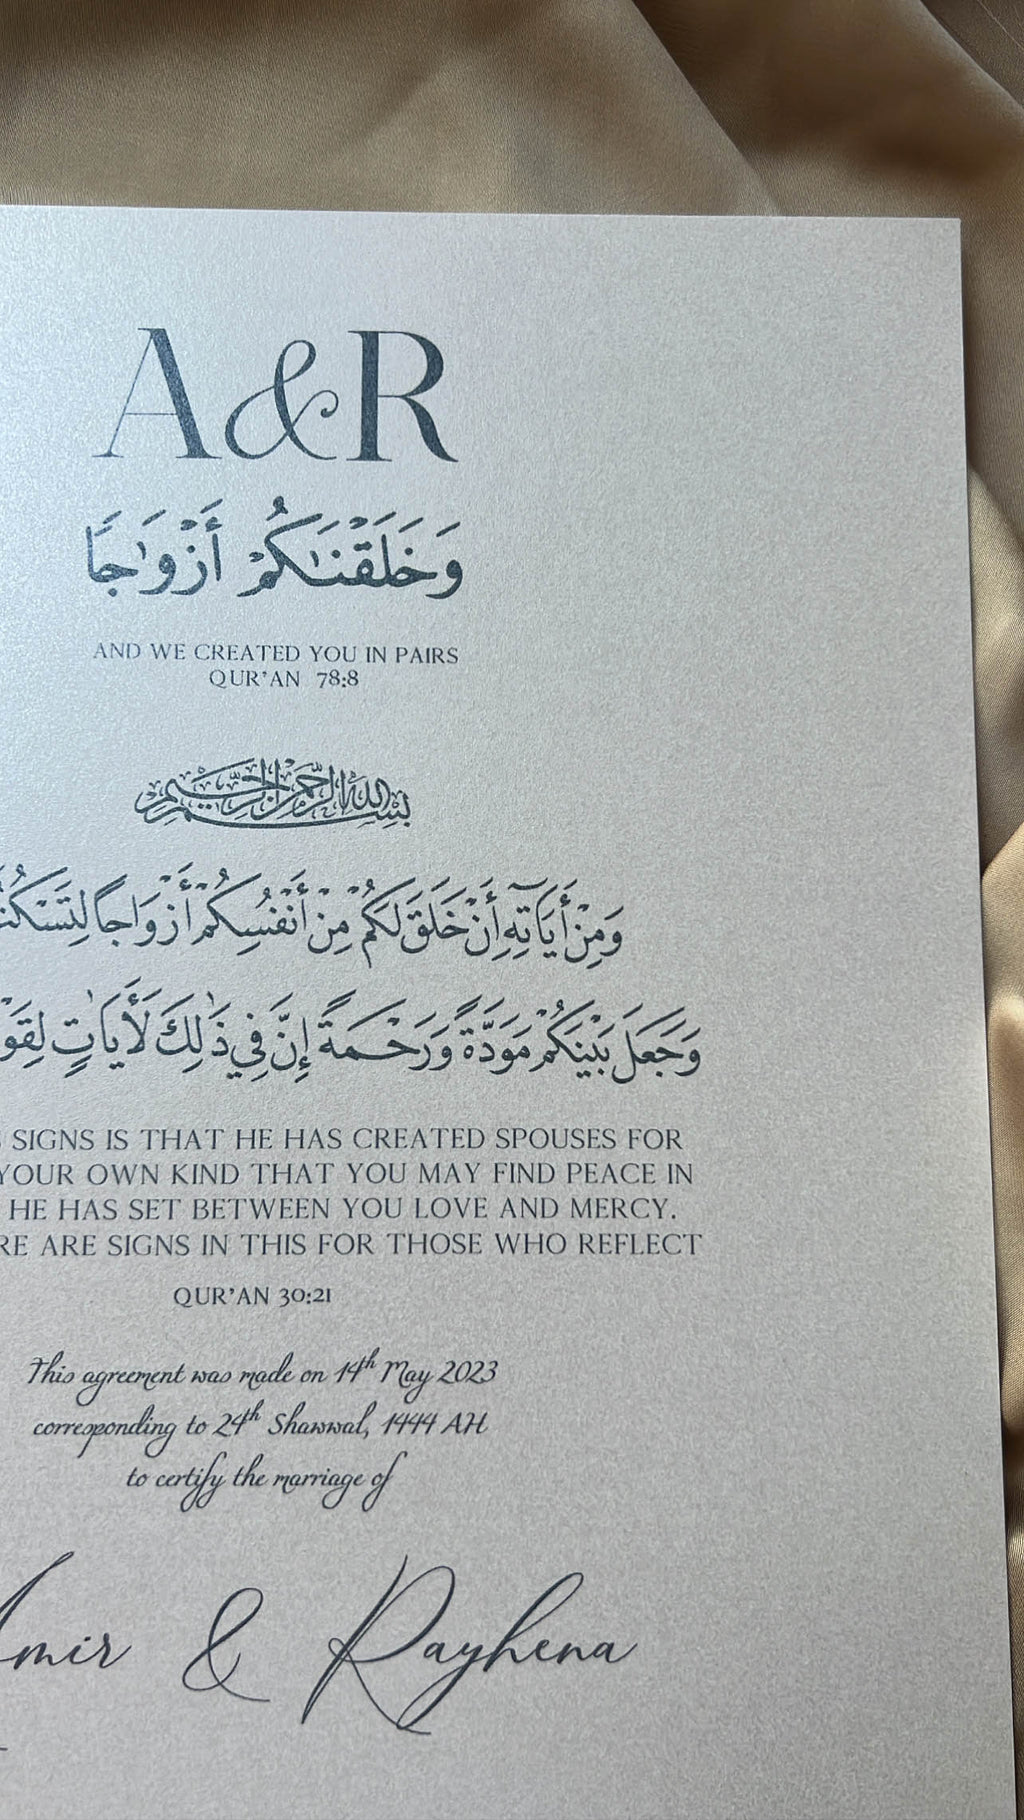 A&R
وَخَلَقْنَـٰكُمْ أَزْوَٰجًا
AND WE CREATED YOU IN PAIRS
QUR’AN 78:8
بسم الله الرحمن الرحيم
وَمِنْ أَيَاتِهِ أَنْ خَلَقَ لَكُم مِنْ أَنْفُسِكُمْ أَزْوَاجاً
وَجَعَلَ بَيْنَكُمْ مَوَدَّةً وَرَحْمَةً إِنَّ فِي ذَٰلِكَ لَأَيَاتٍ
SIGNS IS THAT HE HAS CREATED SPOUSES FOR
YOUR OWN KIND THAT YOU MAY FIND PEACE IN
HE HAS SET BETWEEN YOU LOVE AND MERCY.
ARE SIGNS IN THIS FOR THOSE WHO REFLECT
QUR’AN 30:21
This agreement was made on 14th May 2023
corresponding to 24th Shawwal, 1444 AH
to certify the marriage of
Amir & Rayhena